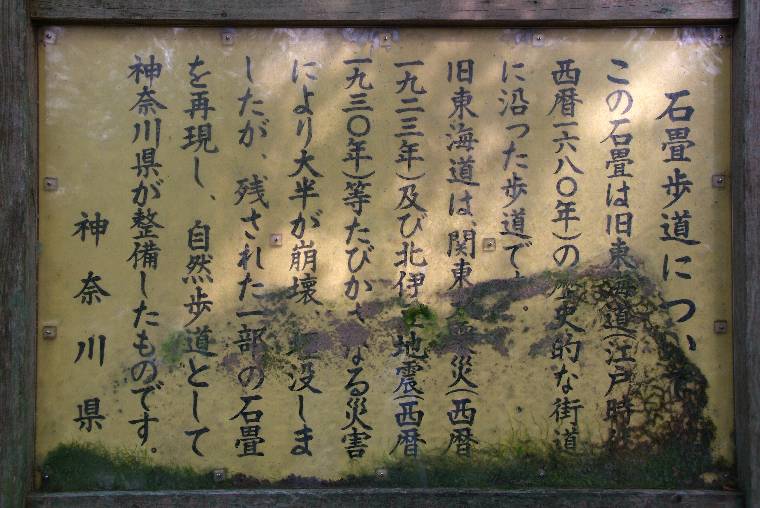 石畳歩道について
この石畳は旧東海道(江戸時代
西暦一六八〇年)の歴史的な街道
に沿った歩道です.
旧東海道は、関東大震災(西暦
一九二三年)及び北伊豆地震(西暦
一九三〇年)等たびかさなる災害
により大半が崩壊、埋没しま
したが、残された一部の石畳
を再現し、自然歩道として
神奈川県が整備したものです。
神奈川県